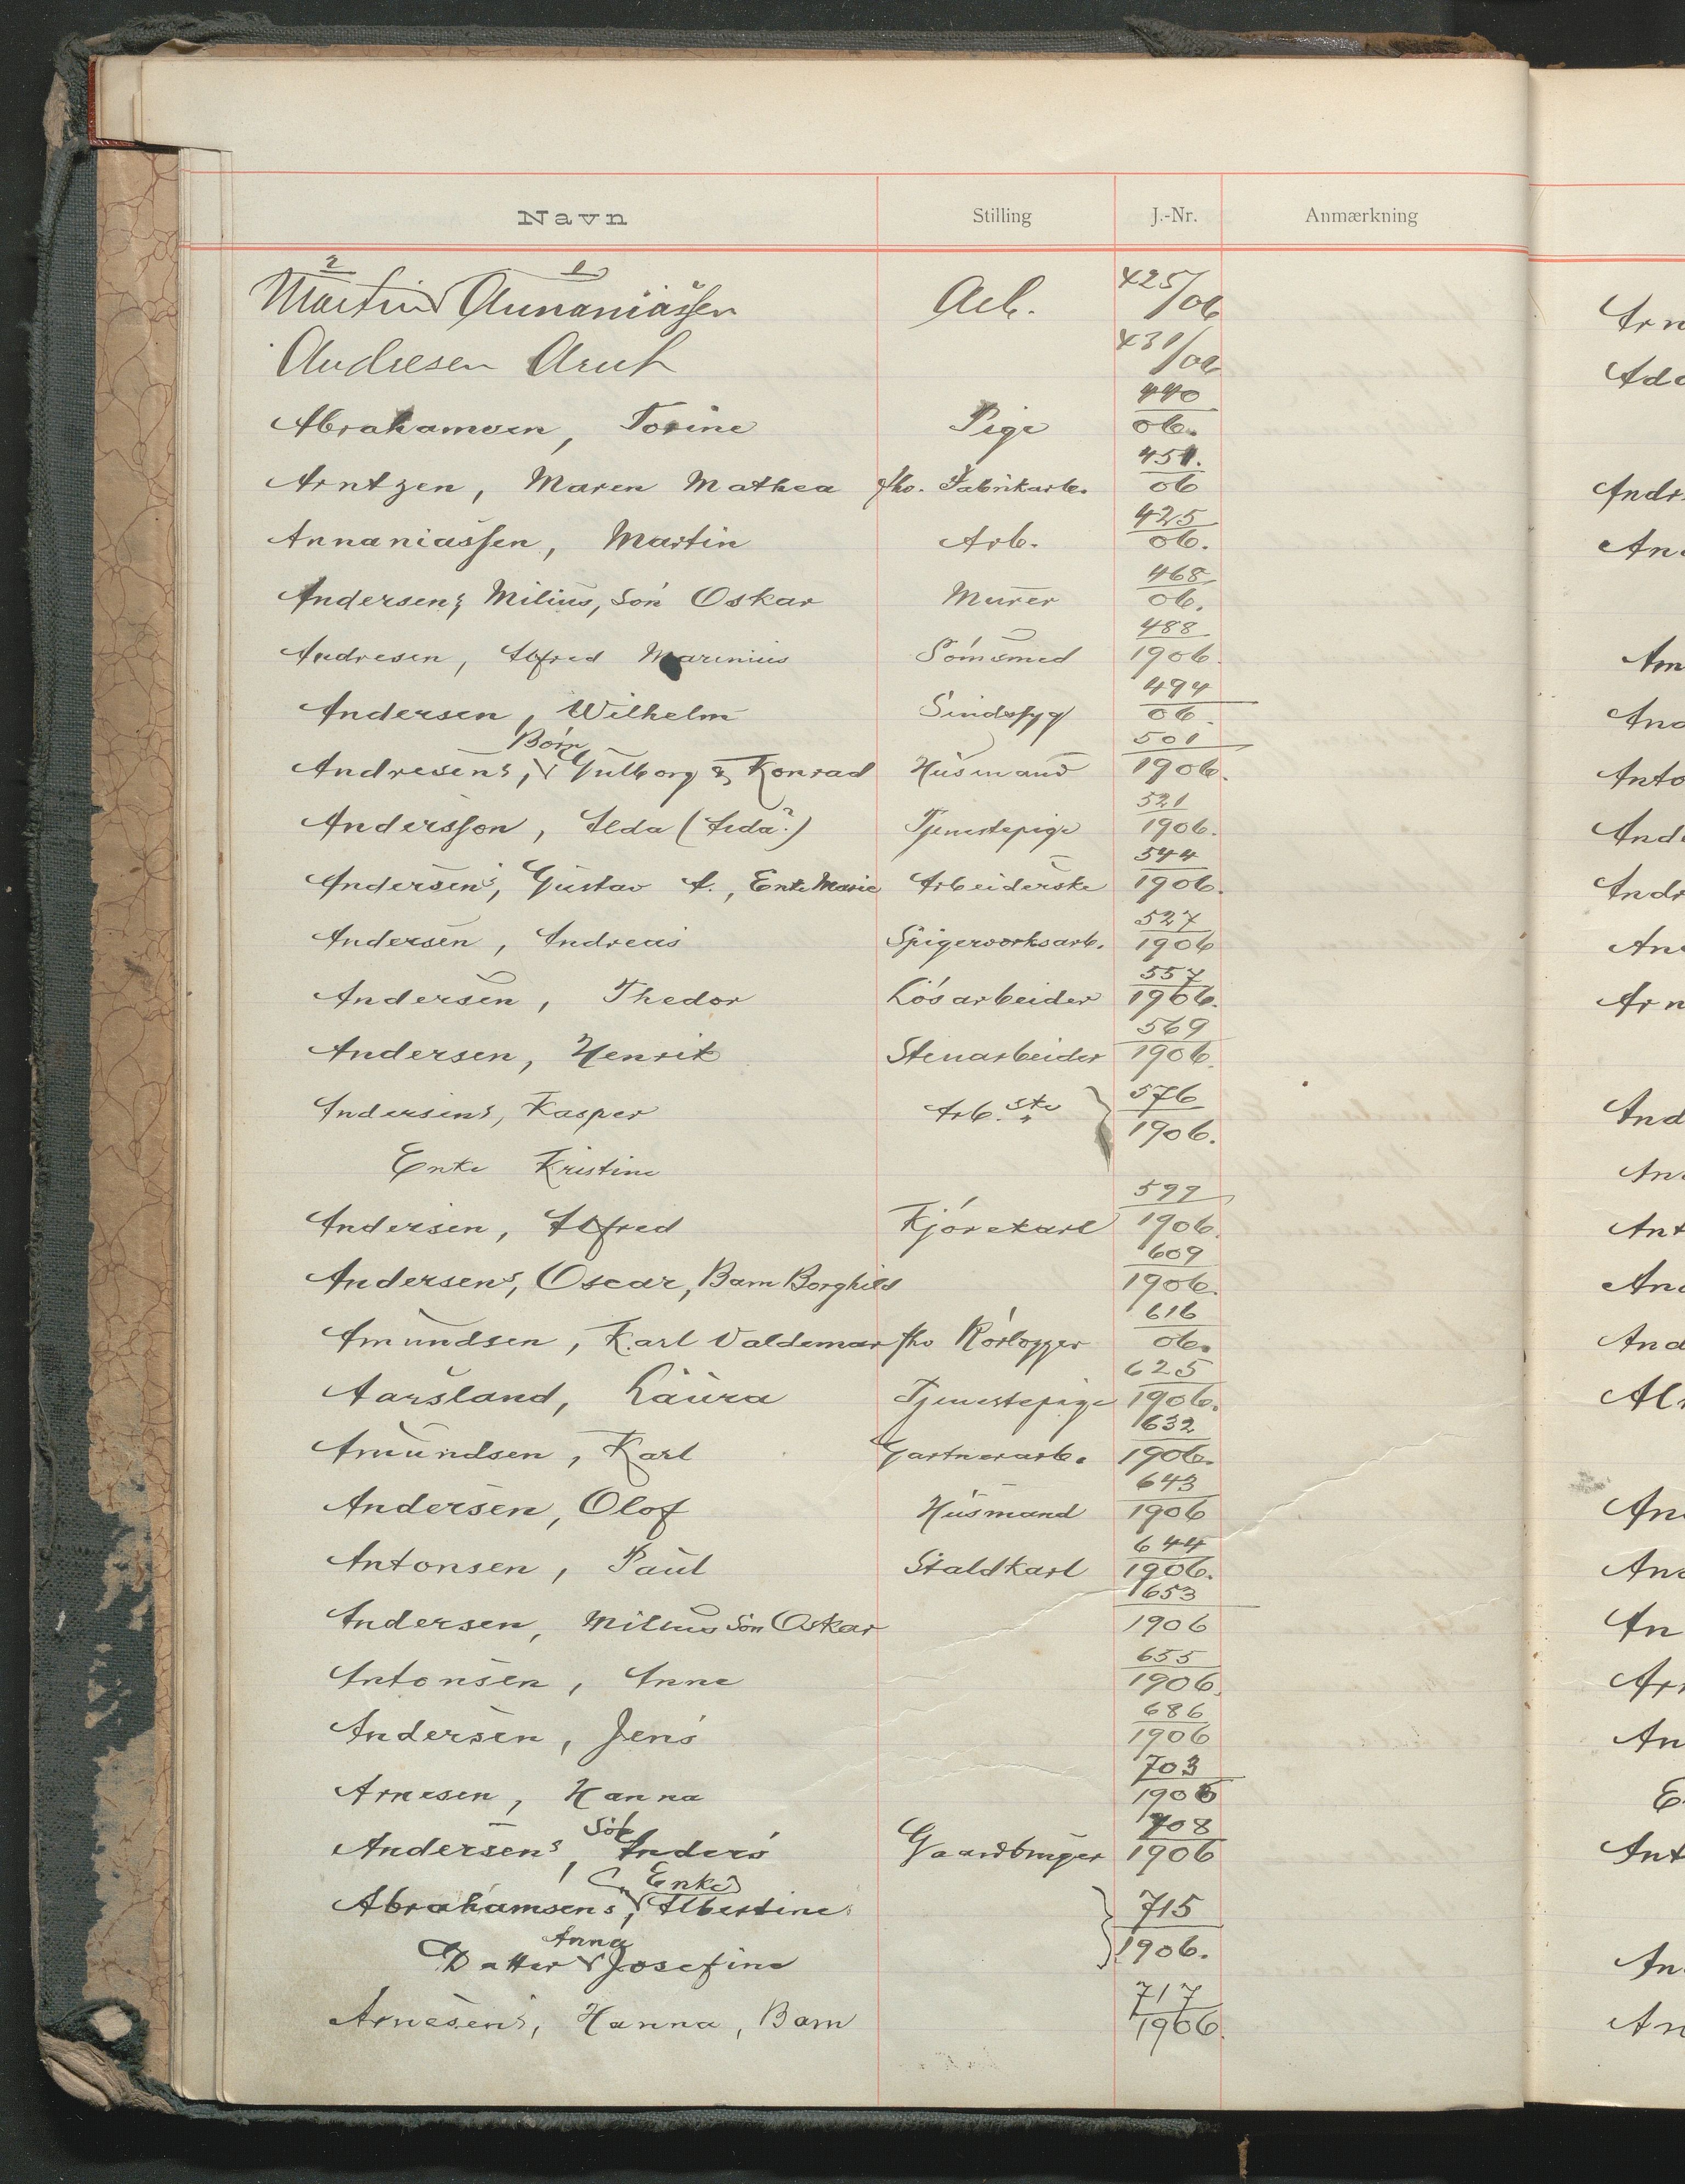 Navn Stilling J.-Nr. Anmærkning
2 1
Martin Annaniassen Arb. 425/06
Andresen Arnt 431/06
Abrahamsen, Torine Pige 440/06.
Arntzen, Maren Mathea fho. Fabrikarb. 451./06
Annaniassen, Martin Arb. 425/06.
Andersens, Milius, Søn Oskar Murer 468/06.
Andresen, Alfred Marinius Sømsmed 488/1906.
Andersen, Wilhelm Sindssyg 494/06.
Børn
Andresens, Gulborg & Konrad Husmand 501/1906.
Andersson, Alda (Aida?) Tjenestepige 521/1906.
Andersens, Gustav A., Enke Marie Arbeiderske 544/1906.
Andersen, Andreas Spigerverksarb. 527/1906
Andersen, Thedor Løsarbeider 557/1906.
Andersen, Henrik Stenarbeider 569/1906.
Andersens, Kasper Arb.ske 576/1906.
Enke Kristine
Andersen, Alfred Kjørekarl 599/1906.
Andersens, Oscar, Barn Borghild 609/1906.
Amundsen, Karl Valdemar fho Rørlægger 616/06.
Aarsland, Laura Tjenestepige 625/1906.
Amundsen, Karl Gartnerarb. 632/1906.
Andersen, Olof Husmand 643/1906
Antonsen, Paul Staldkarl 644/1906.
Andersen, Milius Søn Oskar 653/1906
Antonsen, Anne 655/1906.
Andersen, Jens 686/1906
Arnesen, Hanna 703/1906
Andersens, Anders Gaardbruger 708/1906
Enke
Abrahamsens, Albertine 715/1906.
Anna
Datter Josefine
Arnesens, Hanna, Barn 717/1906.